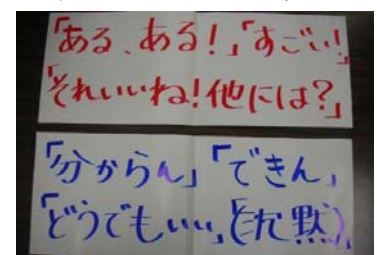 「ある、ある！」「すごい！」
「それいいね！他には？」
「分からん」「できん」
「どうでもいい」（沈黙）